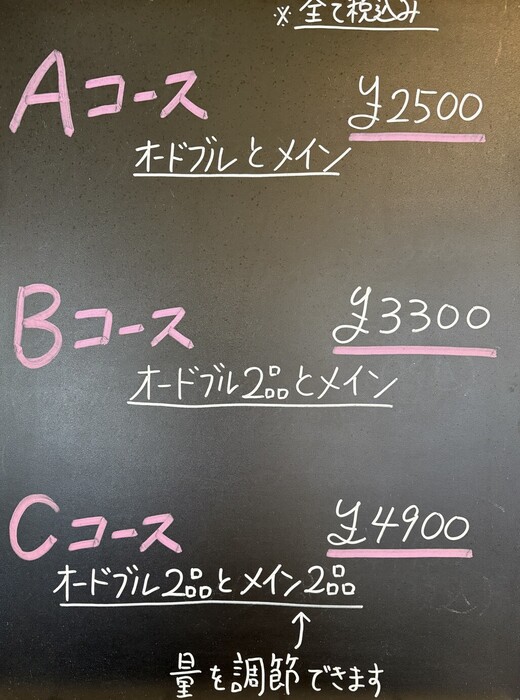 ※ 全て税込み
Aコース ¥2500
オードブルとメイン
Bコース ¥3300
オードブル2品とメイン
Cコース ¥4900
オードブル2品とメイン2品
↑
量を調節できます